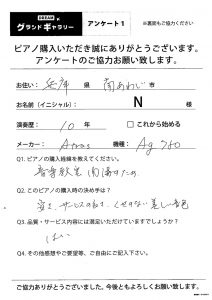 グランドギャラリー アンケート1 ※裏面もご協力ください
ピアノ購入いただき誠にありがとうございます。
アンケートのご協力お願い致します。
お住い: 兵庫 県 南あわじ 市
お名前(イニシャル): N 様
演奏歴: 10年 □これから始める
メーカー: Atlas 機種: Ag780
Q1. ピアノ購入経緯を教えてください。
音楽教室 開講すため
Q2. このピアノの購入時の決め手は?
安さ、サービスの良さ、くせのない美しい音色
Q3. 品質・サービス内容には満足いただけていますでしょうか?
はい
Q4. その他感想やご要望等、ご自由にご記入下さい。
ご協力ありがとうございました。今後ともよろしくお願い致します。